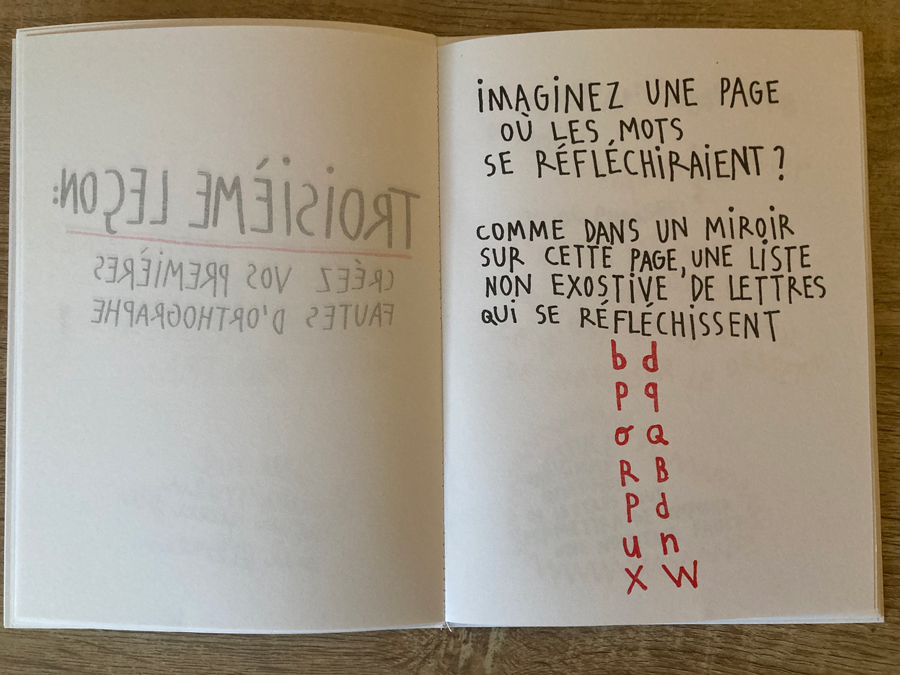 TROISIÈME LEÇON:
CRÉEZ VOS PREMIÈRES
FAUTES D'ORTHOGRAPHE
IMAGINEZ UNE PAGE
OÙ LES MOTS
SE RÉFLÉCHIRAIENT ?
COMME DANS UN MIROIR
SUR CETTE PAGE, UNE LISTE
NON EXOSTIVE DE LETTRES
QUI SE RÉFLÉCHISSENT
b d
p q
σ Q
R B
P d
u n
X W